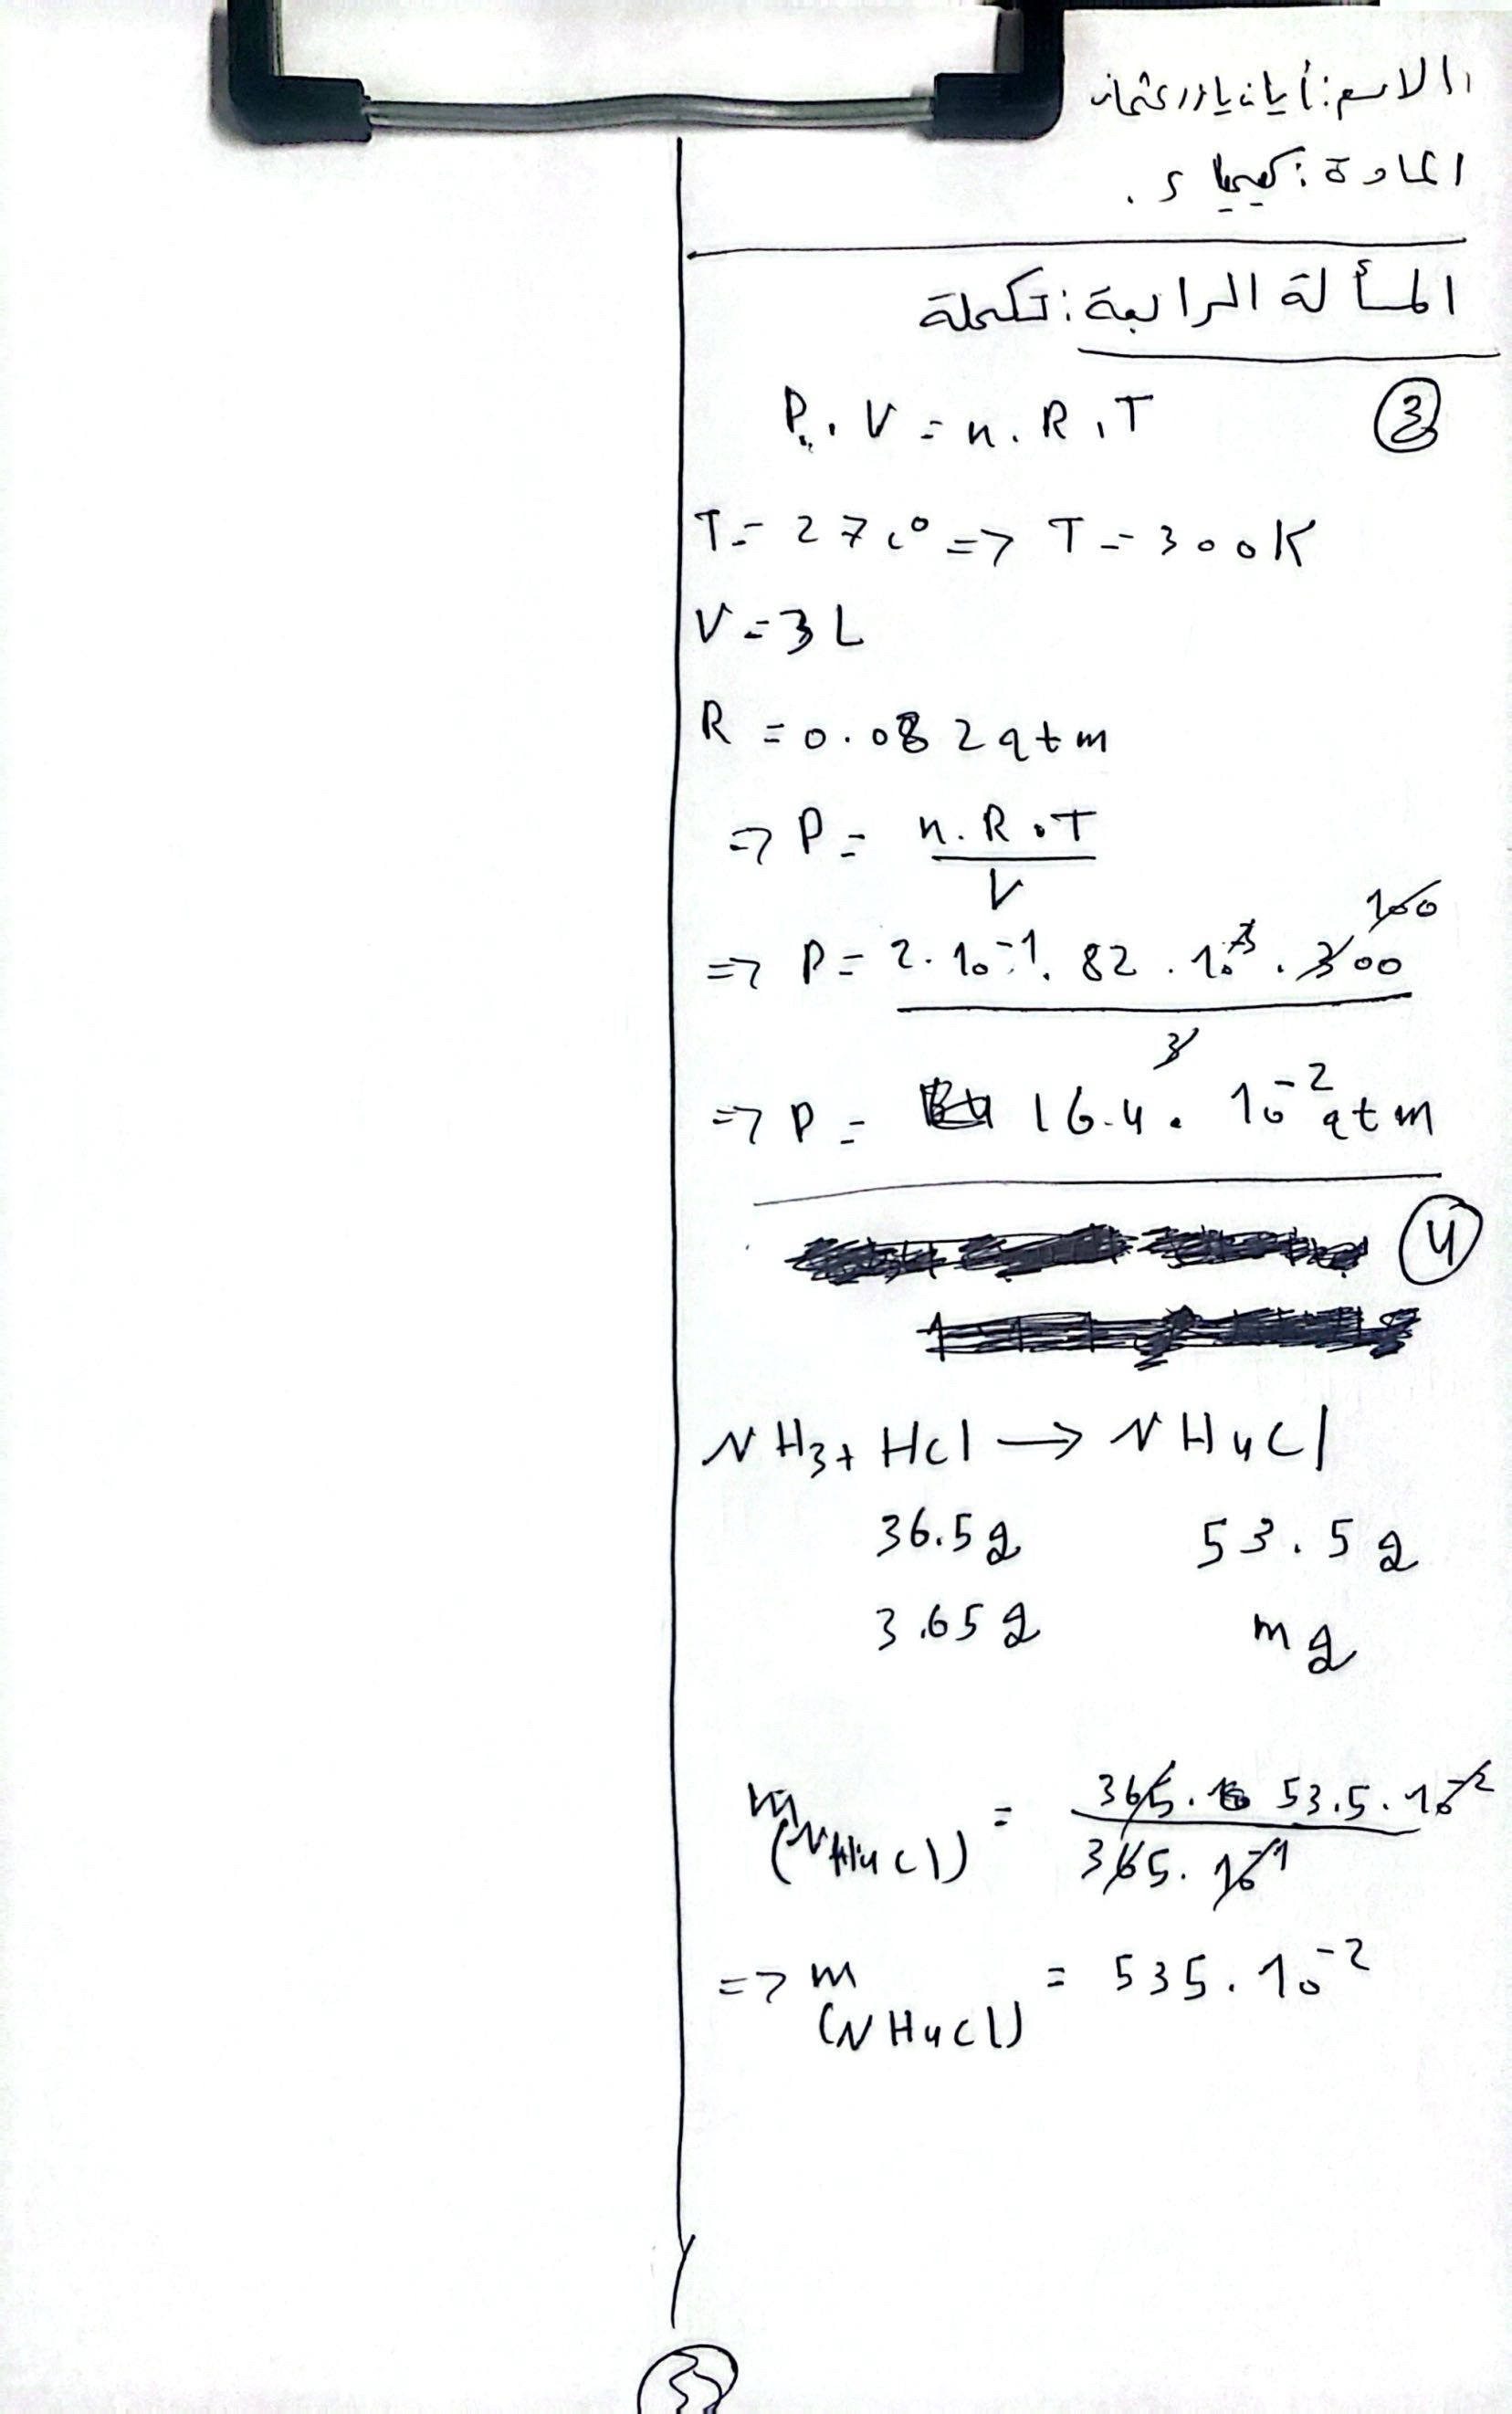 الاسم: أيان يازر عثمان
المادة: كيمياء.
المسألة الرابعة: تكملة
3
P. V = n. R. T
T = 27 c° => T = 300K
V = 3 L
R = 0.082 atm
=> P = n. R. T
V
100
=> P = 2. 10⁻¹. 82. 10⁻³. 300
3
=> P = 16.4. 10⁻² atm
4
NH₃ + HCl → NH₄Cl
36.5g 53.5g
3.65g mg
m(NH₄Cl) = 365. 53.5. 10⁻²
365. 10⁻¹
=> m(NH₄Cl) = 535. 10⁻²
3